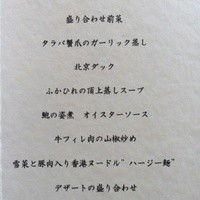 盛り合わせ前菜
タラバ蟹爪のガーリック蒸し
北京ダック
ふかひれの頂上蒸しスープ
鮑の姿煮　オイスターソース
牛フィレ肉の山椒炒め
雪菜と豚肉入り香港ヌードル"ハージー麺"
デザートの盛り合わせ